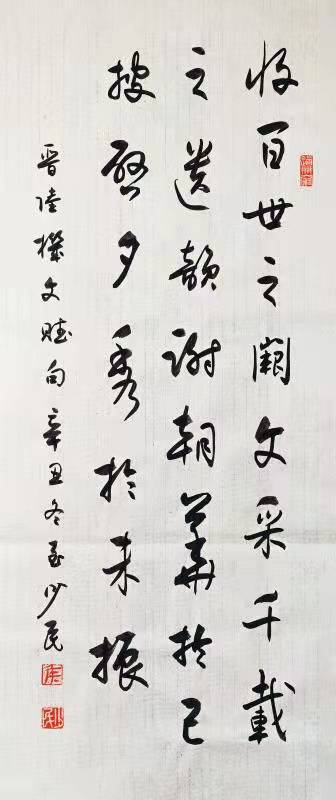 收百世之闕文采千載
之遺韻謝朝華於已
披啓夕秀於未振
晉陸機文賦句辛丑冬至少民